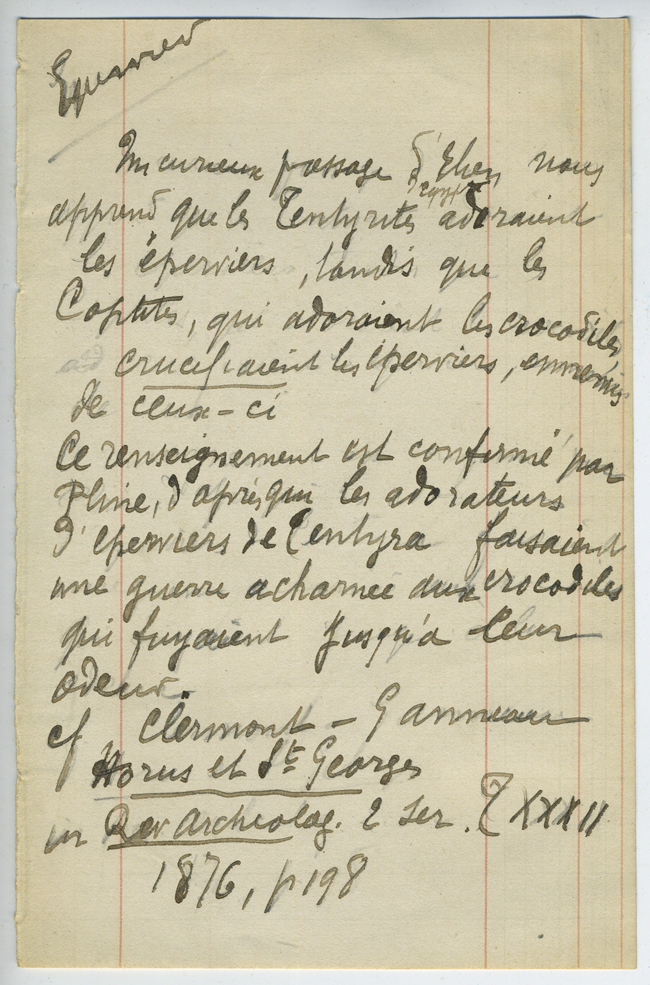 Epervier
Un curieux passage d'Elien nous
d'Egypte
apprend que les Tentyrites adoraient
les éperviers, tandis que les
Coptites, qui adoraient les crocodiles
crucifiaient les éperviers, ennemis
de ceux-ci
Ce renseignement est confirmé par
Pline, d'après qui les adorateurs
d'éperviers de Tentyra faisaient
une guerre acharnée aux crocodiles
qui fuyaient jusqu'à leur
odeur.
cf Clermont - Ganneau
Horus et St Georges
in Rev Archeolog. 2 Ser. T XXXII
1876, p 198